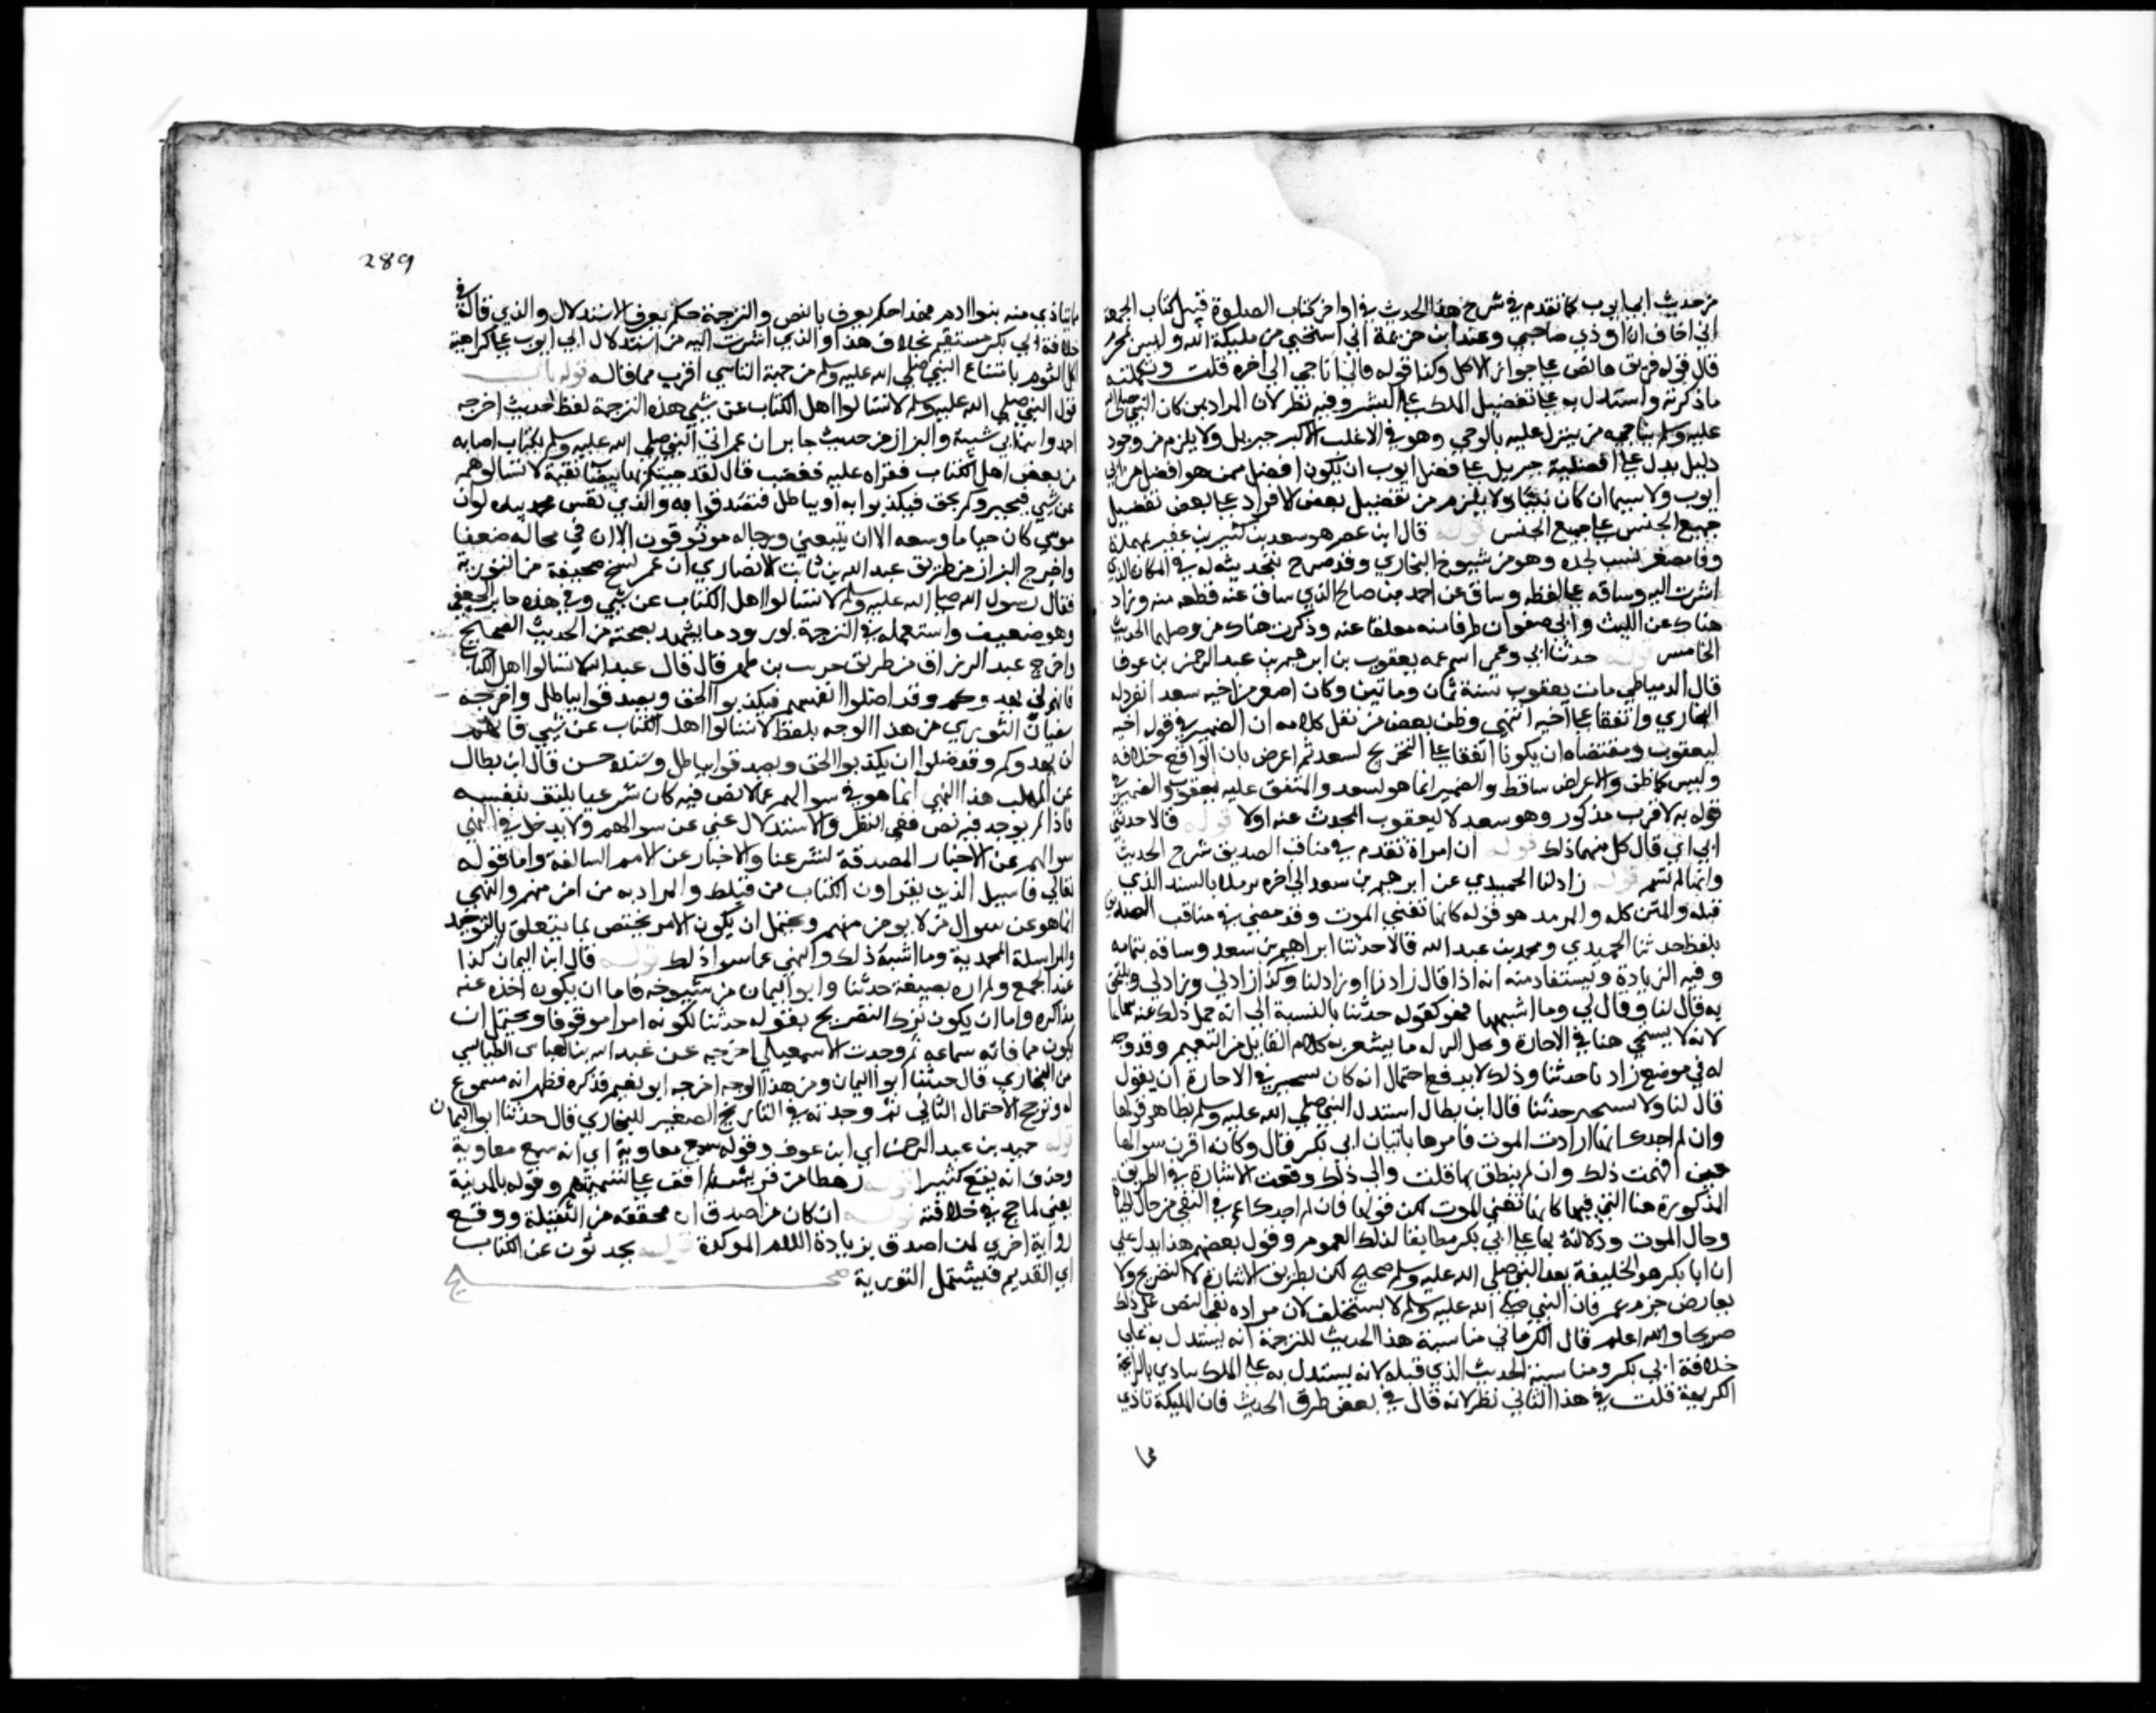 من حديث ابي ايوب كما تقدم في شرح هذا الحديث في اواخر كتاب الصلوة قبيل كتاب الجمعة
اني اخاف ان اوذي صاحبي وعند ابن خزيمة اني استحيي من مليكة الله وليس بمحرم
قال قوله قربوها نص على جواز الاكل وكذا قوله فاني اناجي الى اخره قلت وتكملته
ما ذكرته واستدل به على تفضيل الملك على البشر وفيه نظر لان المراد بمن كان النبي صلى الله
عليه وسلم يناجيه من ينزل عليه بالوحي وهو في الاغلب الاكبر جبريل ولا يلزم من وجود
دليل يدل على افضلية جبريل على فضل ايوب ان يكون افضل ممن هو افضل من ابي
ايوب ولا سيما ان كان نبيا ولا يلزم من تفضيل بعض الافراد على بعض تفضيل
جميع الجنس على جميع الجنس قوله قال ابن عفير هو سعيد بن كثير بن عفير بمهملة
وفا مصغر نسب لجده وهو من شيوخ البخاري وقد صرح بتحديثه له في المكان الذي
اشرت اليه وساقه على لفظه وساق عن احمد بن صالح الذي ساق عنه قطعه منه وزاد
هناك عن الليث وابي صفوان طرفا منه معلقا عنه وذكرت هناك من وصلهما الحديث
الخامس قوله حدثنا ابي وعمي اسم عمه يعقوب بن ابرهيم بن عبد الرحمن بن عوف
قال الدمياطي مات يعقوب سنة ثمان وماتين وكان اصغر من اخيه سعد انفرد له
البخاري واتفقا على اخيه انتهى وظن بعض من نقل كلامه ان الضمير في قوله اخيه
ليعقوب ومقتضاه ان يكونا اتفقا على التخريج لسعد ثم اعرض بان الواقع خلافه
وليس كما ظن والاعراض ساقط والضمير انما هو لسعد والمتفق عليه يعقوب والضمير في
قوله به لاقرب مذكور وهو سعد لا ليعقوب المحدث عنه اولا قوله قالا حدثنا
ابي اي قال كل منهما ذلك قوله ان امراة تقدم في مناقب الصديق شرح الحديث
وانها لم تسم قوله زاد لنا الحميدي عن ابرهيم بن سعد الى اخره يريد بالسند الذي
قبله والمتن كله والمزيد هو قوله كانها تعني الموت وقد مضى في مناقب الصديق
بلفظ حدثنا الحميدي ومحمد بن عبد الله قالا حدثنا ابراهيم بن سعد وساقه بتمامه
وفيه الزيادة ويستفاد منه انه اذا قال زاد نا او زاد لنا وكذا زادني وزاد لي ويلتحق
به قال لنا وقال لي وما اشبهها فهو كقوله حدثنا بالنسبة الى انه حمل ذلك عنه سماعا
لانه لا يستحي هنا في الاجازة ومحل الرد له ما يشعر به كلام القايل من التعميم وقد وجد
له في موضع زاد نا حدثنا وذلك لا يدفع احتمال انه كان يستجيز في الاجازة ان يقول
قال لنا ولا يستجيز حدثنا قال ابن بطال استدل النبي صلى الله عليه وسلم بظاهر قولها
وان لم اجدك انها ارادت الموت فامرها باتيان ابي بكر قال وكانه اقترن بسوالها
حين افهمت ذلك وان لم ينطق بها قلت والى ذلك وقعت الاشارة في الطريق
المذكورة هنا التي فيها كانها تعني الموت لكن قولها فان لم اجدك اعم في النفي من حال الحياة
وحال الموت ودلالته لها على ابي بكر مطابقا لذلك العموم وقول بعضهم هذا يدل على
ان ابا بكر هو الخليفة بعد النبي صلى الله عليه وسلم صحيح لكن بطريق الاشارة لا التصريح ولا
يعارض جزم عمر فان النبي صلى الله عليه وسلم لا يستخلف لان مراده نفي النص على ذلك
صريحا والله اعلم قال الكرماني مناسبة هذا الحديث للترجمة انه يستدل به على
خلافة ابي بكر ومناسبة الحديث الذي قبله لانه يستدل به على الملك يتاذى بالرائحة
الكريهة قلت في هذا الثاني نظر لانه قال في بعض طرق الحديث فان المليكة تاذى
289
ما يتاذى منه بنوا ادم فهذا حكم يعرف بالنص والترجمة حكم يعرف بالاستدلال والذي قاله في
خلافة ابي بكر مستقيم بخلاف هذا والذي اشرت اليه من استدلال ابي ايوب على كراهية
اكل الثوم بامتناع النبي صلى الله عليه وسلم من جهة التاسي اقرب مما قاله قوله باب
قول النبي صلى الله عليه وسلم لا تسالوا اهل الكتاب عن شي هذه الترجمة لفظ حديث اخرجه
احمد وابن ابي شيبة والبزار من حديث جابر ان عمر اتى النبي صلى الله عليه وسلم بكتاب اصابه
من بعض اهل الكتاب فقراه عليه فغضب قال لقد جيتكم بها بيضا نقية لا تسالوهم
عن شي فيخبروكم بحق فيكذبوا به او بباطل فتصدقوا به والذي نفس محمد بيده لو ان
موسى كان حيا ما وسعه الا ان يتبعني ورجاله موثوقون الا ان في مجالد ضعفا
واخرج البزار من طريق عبد الله بن ثابت الانصاري ان عمر نسخ صحيفة من التورية
فقال رسول الله صلى الله عليه وسلم لا تسالوا اهل الكتاب عن شي وفي هذه جابر الجعفي
وهو ضعيف واستعمله في الترجمة لورود ما يشهد بصحته من الحديث الصحيح
واخرج عبد الرزاق من طريق حريث بن ظهير قال قال عبد الله لا تسالوا اهل الكتاب
فانهم لن يهدوكم وقد اضلوا انفسهم فيكذبوا الحق ويصدقوا بباطل واخرجه
سفيان الثوري من هذا الوجه بلفظ لا تسالوا اهل الكتاب عن شي فانهم
لن يهدوكم وقد ضلوا ان يكذبوا الحق ويصدقوا بباطل وسنده حسن قال ابن بطال
عن المهلب هذا النهي انما هو في سوالهم عما لا نص فيه كان شرعيا يكتفى بنفسه
فاذا لم يوجد فيه نص ففي النظر والاستدلال غنى عن سوالهم ولا يدخل في النهي
سوالهم عن الاخبار المصدقة لشرعنا والاخبار عن الامم السالفة واما قوله
تعالى فاسيل الذين يقراون الكتاب من قبلك والمراد به من امن منهم والنهي
انما هو عن سوال من لا يومن منهم ويحتمل ان يكون الامر يختص بما يتعلق بالتوحيد
والرسالة المحمدية وما اشبه ذلك والنهي عما سوا ذلك قوله قال ابو اليمان كذا
عند الجمع ولم اره بصيغة حدثنا وابو اليمان من شيوخه فاما ان يكون اخذه عنه
مذاكره واما ان يكون ترك التصريح بقوله حدثنا لكونه اموا موقوفا ويحتمل ان
يكون مما فاته سماعه ثم وجدت الاسمعيلي اخرجه عن عبد الله بن العباس الطيالسي
عن البخاري قال حدثنا ابو اليمان ومن هذا الوجه اخرجه ابو نعيم فذكره فظهر انه مسموع
له وترجح الاحتمال الثاني ثم وجدته في التاريخ الصغير للبخاري قال حدثنا ابو اليمان
قوله حميد بن عبد الرحمن اي ابن عوف وقوله سمع معاوية اي انه سمع معاوية
وحذف انه يقع كثيرا قوله رهطا من قريش لم اقف على تسميتهم وقوله بالمدينة
يعني لما حج في خلافته قوله ان كان من اصدق ان مخففه من الثقيلة ووقع
رواية اخرى لمن اصدق بزيادة اللام الموكدة قوله يحدثون عن الكتاب
اي القديم فيشتمل التورية صح